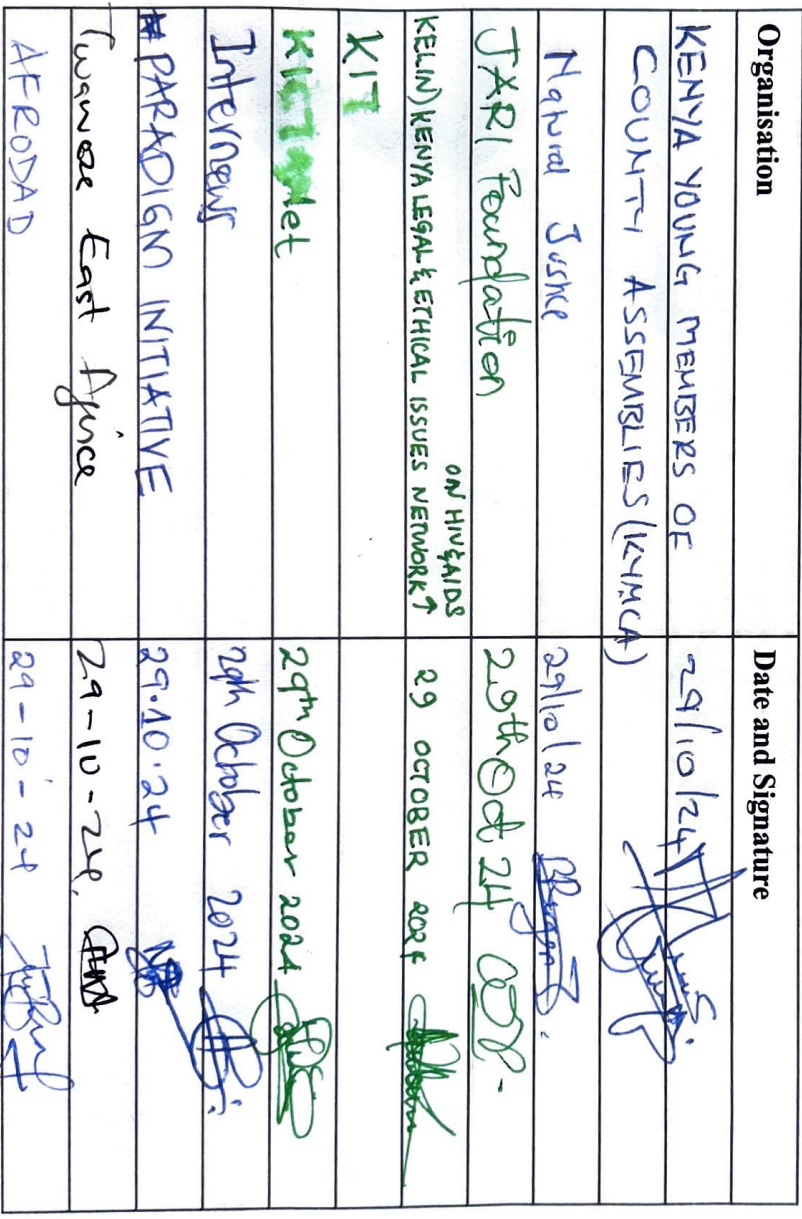 Organisation
Date and Signature
KENYA YOUNG MEMBERS OF
29/10/24
COUNTY ASSEMBLIES (KYMCA)
Natural Justice
29/10/24
JARI Foundation
29th Oct 24
ON HIV&AIDS
KELIN) KENYA LEGAL & ETHICAL ISSUES NETWORK↑
29 OCTOBER 2024
KIT
KICTANet
29th October 2024
Internews
29th October 2024
PARADIGM INITIATIVE
29.10.24
Twaweza East Africa
29-10-24
AFRODAD
29-10-24